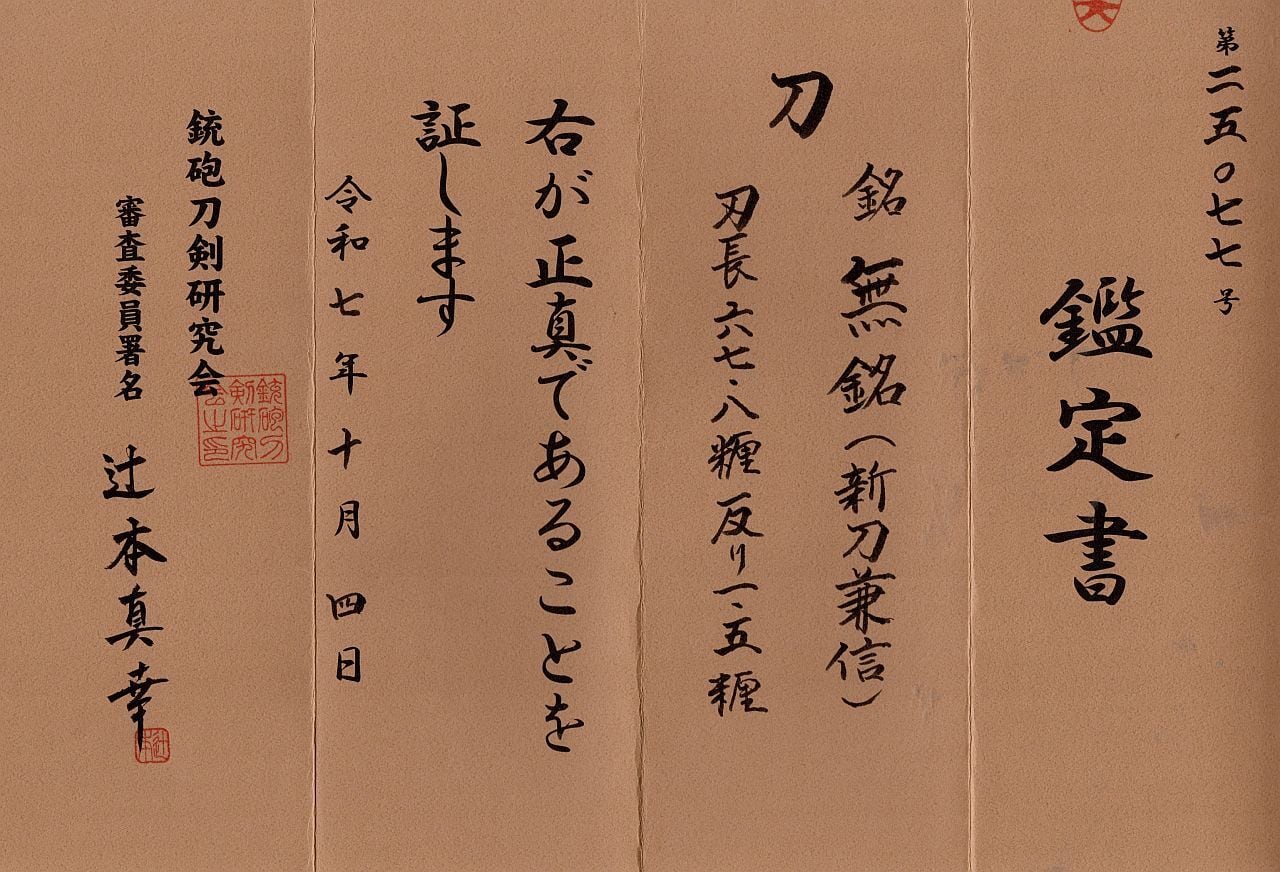 第二五〇七七号
鑑定書
刀
銘 無銘(新刀兼信)
刃長六七・八糎 反り一・五糎
右が正真であることを
証します
令和七年十月四日
銃砲刀剣研究会
銃砲刀剣研究会之印
審査委員署名 辻本真幸
辻本